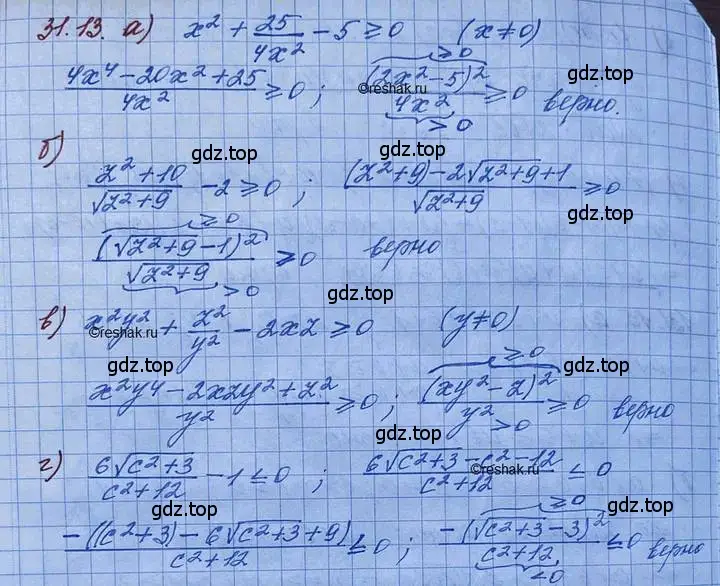 31.13. а) x² + 25/4x² - 5 ≥ 0 (x ≠ 0)
(4x⁴ - 20x² + 25)/4x² ≥ 0 ; (2x² - 5)²/4x² ≥ 0 верно.
≥ 0
> 0
©reshak.ru
б)
gdz.top
(z² + 10)/√(z² + 9) - 2 ≥ 0 ; ((z² + 9) - 2√(z² + 9) + 1)/√(z² + 9) ≥ 0
gdz.top
gdz.top
≥ 0
(√(z² + 9) - 1)²/√(z² + 9) ≥ 0 верно
> 0
gdz.top
gdz.top
в) x²y² + z²/y² - 2xz ≥ 0 (y ≠ 0)
©reshak.ru
gdz.top
≥ 0
gdz.top
(x²y⁴ - 2xzy² + z²)/y² ≥ 0 ; (xy² - z)²/y² ≥ 0 верно
> 0
gdz.top
г) 6√(c² + 3)/(c² + 12) - 1 ≤ 0 ; (6√(c² + 3) - c² - 12)/(c² + 12) ≤ 0
©reshak.ru
gdz.top
gdz.top
≥ 0
-((c² + 3) - 6√(c² + 3) + 9)/(c² + 12) ≤ 0 ; -(√(c² + 3) - 3)²/(c² + 12) ≤ 0 верно
gdz.top